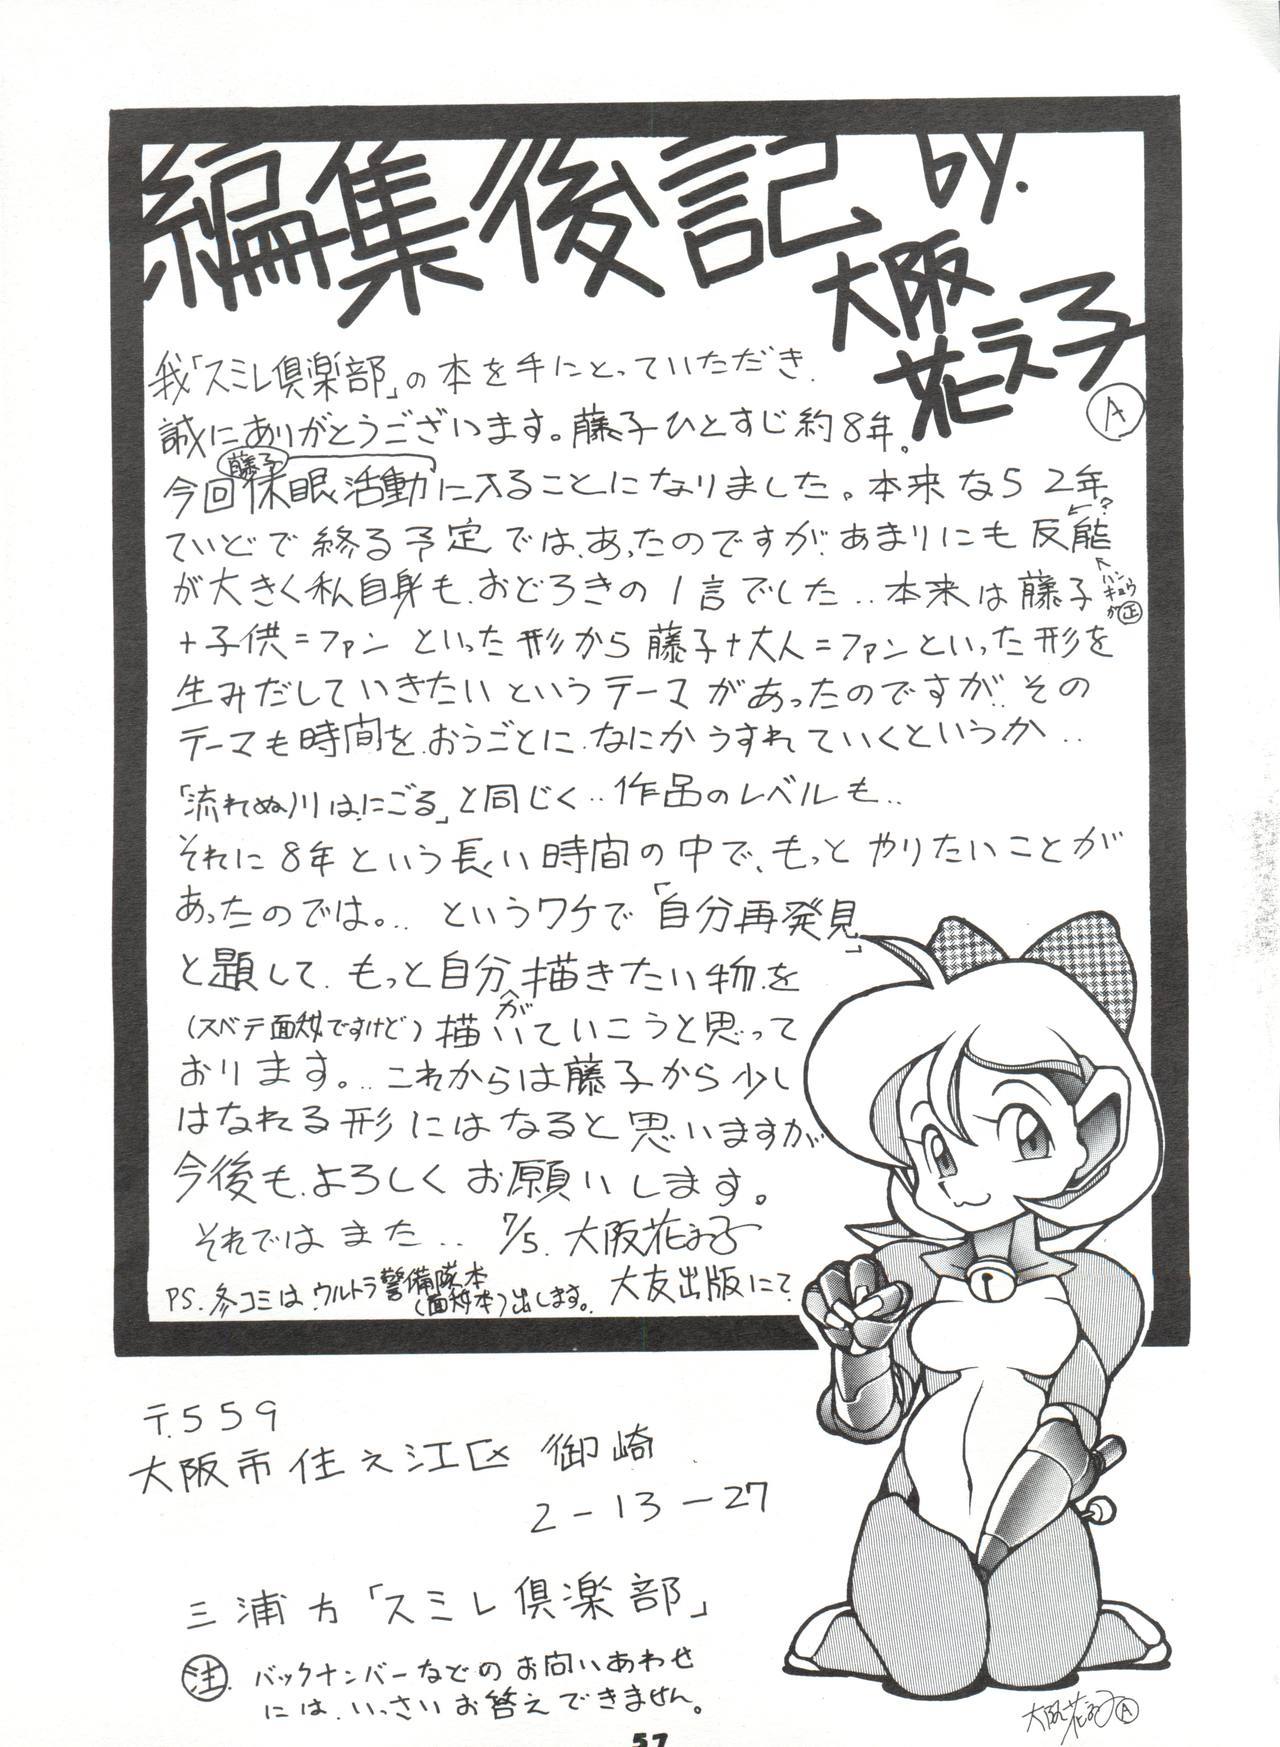 編集後記 by.
大阪
花えラ子
Ⓐ
我「スミレ倶楽部」の本を手にとっていただき.
誠にありがとうございます。藤子ひとすじ約8年。
藤子
今回休眠活動に入ることになりました。本来なら2年
←?
ていどで終る予定では、あったのですが、あまりにも反能
↖ハンキョウか㊣
が大きく私自身も、おどろきの1言でした‥本来は藤子
+子供=ファン といった形から藤子+大人=ファンといった形を
生みだしていきたいというテーマがあったのですが‥その
テーマも時間を、おうごとに、なにかうすれていくというか‥
「流れぬ川は、にごる」と同じく‥作品のレベルも‥
それに8年という長い時間の中で、もっとやりたいことが
あったのでは。‥ というワケで「自分再発見」
と題して、もっと自分が描きたい物を
(スベテ面妖ですけど)描いていこうと思って
おります。‥これからは藤子から少し
はなれる形にはなると思いますが
今後も、よろしくお願いします。
それではまた‥ 7/5. 大阪花えラ子
大友出版にて
PS. 冬コミは、ウルトラ警備隊本
(面妖本)出します。
〒559
大阪市住之江区 御崎
2-13-27
三浦方「スミレ倶楽部」
注 バックナンバーなどのお問いあわせ
には、いっさいお答えできません。
57